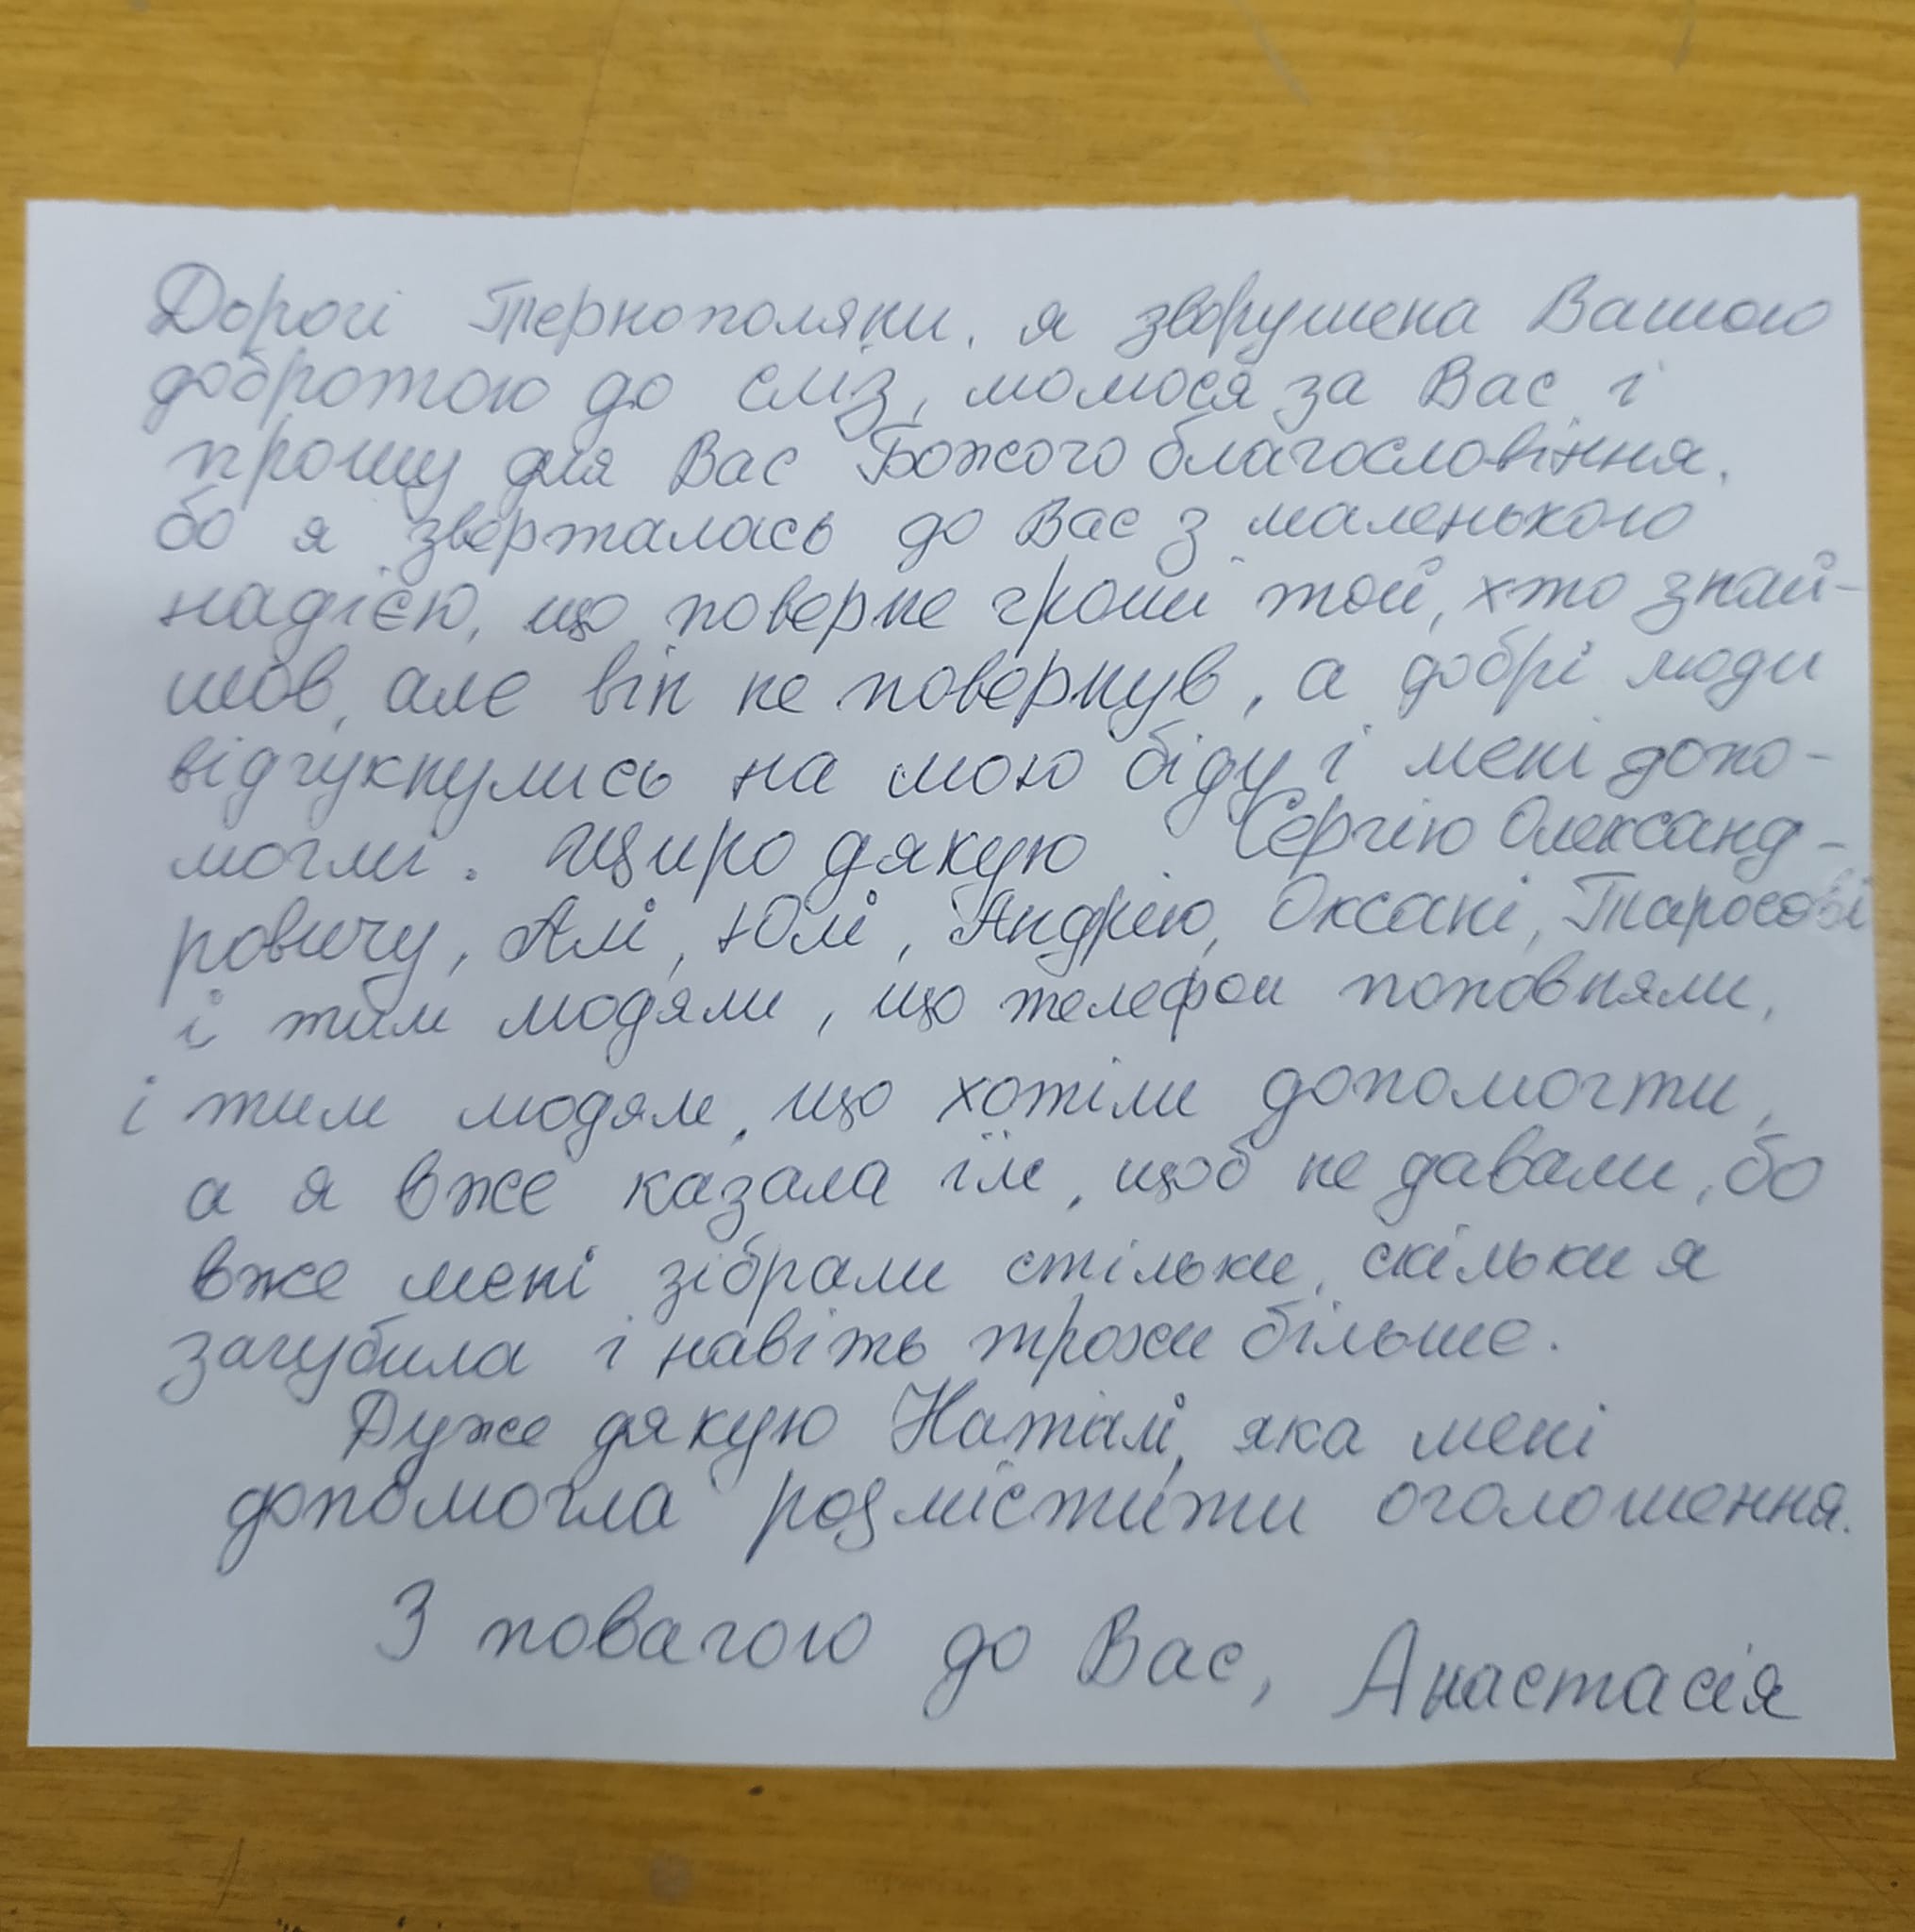 Дорогі Тернополяни, я зворушена Вашою
добротою до сліз, молюся за Вас і
прошу для Вас Божого благословіння,
бо я зверталась до Вас з маленькою
надією, що поверне гроші той, хто знай-
шов, але він не повернув, а добрі люди
відгукнулись на мою біду і мені допо-
могли. Щиро дякую Сергію Олександ-
ровичу, Алі, Юлі, Андрію, Оксані, Тарасові
і тим людям, що телефон поповняли,
і тим людям, що хотіли допомогти,
а я вже казала їм, щоб не давали, бо
вже мені зібрали стільки, скільки я
загубила і навіть трохи більше.
Дуже дякую Наталі, яка мені
допомогла розмістити оголошення.
З повагою до Вас, Анастасія